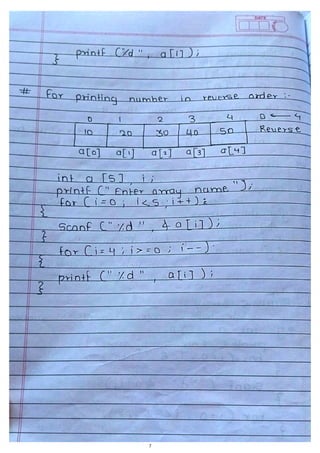 DATE
printf ("%d", a[i]);
}
# For printing number in reverse order :-
0 1 2 3 4 0 ← 4
10 20 30 40 50 Reverse
a[0] a[1] a[2] a[3] a[4]
int a [5], i;
printf (" Enter array name");
for ( i=0 ; i<5 ; i++);
{
Scanf (" %d ", & a[i]);
}
for (i=4 ; i>=0 ; i--)
{
printf (" %d ", a[i] );
}